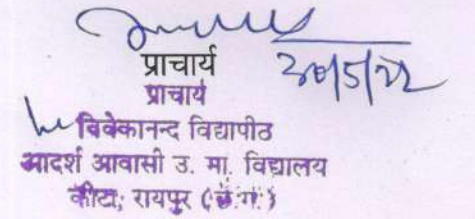 प्राचार्य 30/5/22
प्राचार्य
विवेकानन्द विद्यापीठ
आदर्श आवासी उ. मा. विद्यालय
कोटा, रायपुर (छ.ग.)